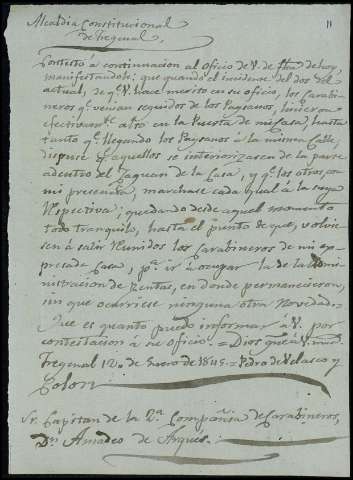 11
Alcaldia Constitucional
de Fregenal.
Contesto á continuacion al oficio de V. de fha de hoy,
manifestandole: que quando el incidente del dos del
actual, de qe. V. hace merito en su oficio, los Carabi-
neros qe. venian seguidos de los Paysanos, hicieron
efectivamte. alto en la Puerta de mi Casa, hasta
tanto qe. llegando los Paysanos á la misma Calle,
dispuse qe. aquellos se interiorizasen de la parte
adentro del Zaguan de la Casa, y qe. los otros, con
mi presencia, marchase cada qual á la suya
Respectiva; quedando desde aquel momento
todo tranquilo, hasta el punto de que, volvie-
sen á salir Reunidos los Carabineros de mi ex-
presada Casa, pa. ir á ocupar la de la Admi-
nistracion de Rentas, en donde permanecieron,
sin que ocurriese ninguna otra Novedad.=
Que es quanto puedo informar á V. por
contestacion á su oficio. = Dios gue. á V. ms. as.
Fregenal 12 de Enero de 1845. = Pedro de Velasco y
Colon
Sr. Capitan de la 2a. Compañia de Carabineros,
Dn. Amadeo de Arques.